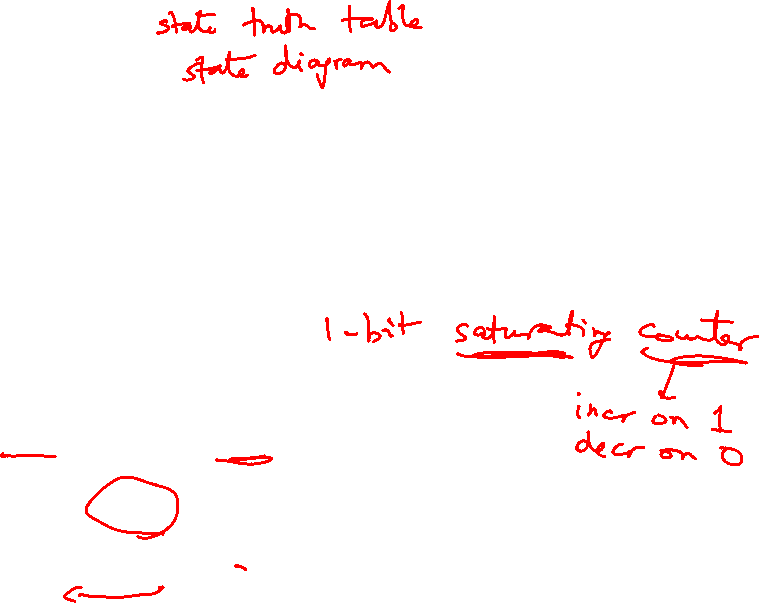 state truth table
state diagram
1-bit saturating counter
incr on 1
decr on 0